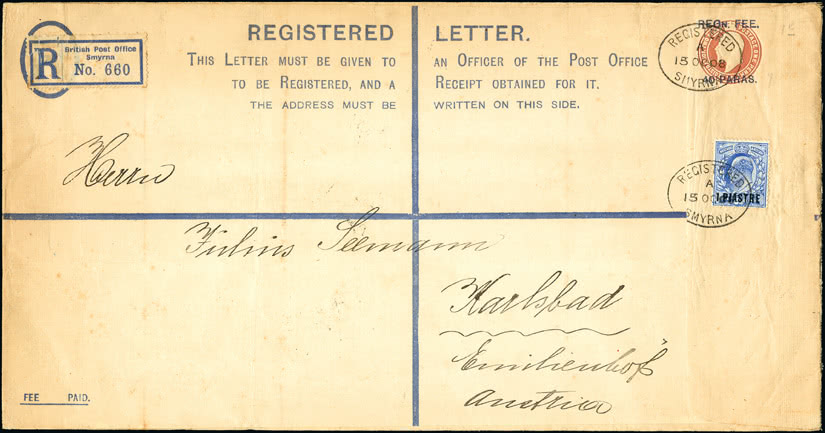 REGISTERED LETTER.
THIS LETTER MUST BE GIVEN TO AN OFFICER OF THE POST OFFICE
TO BE REGISTERED, AND A RECEIPT OBTAINED FOR IT.
THE ADDRESS MUST BE WRITTEN ON THIS SIDE.
R
British Post Office
Smyrna
No. 660
REGN. FEE.
40 PARAS.
REGISTERED
A
15 OC 08
SMYRNA
REGISTERED
A
15 OC
SMYRNA
1 PIASTRE
Herrn
Julius Seemann
Karlsbad
Emilienhof
Austria
FEE PAID.